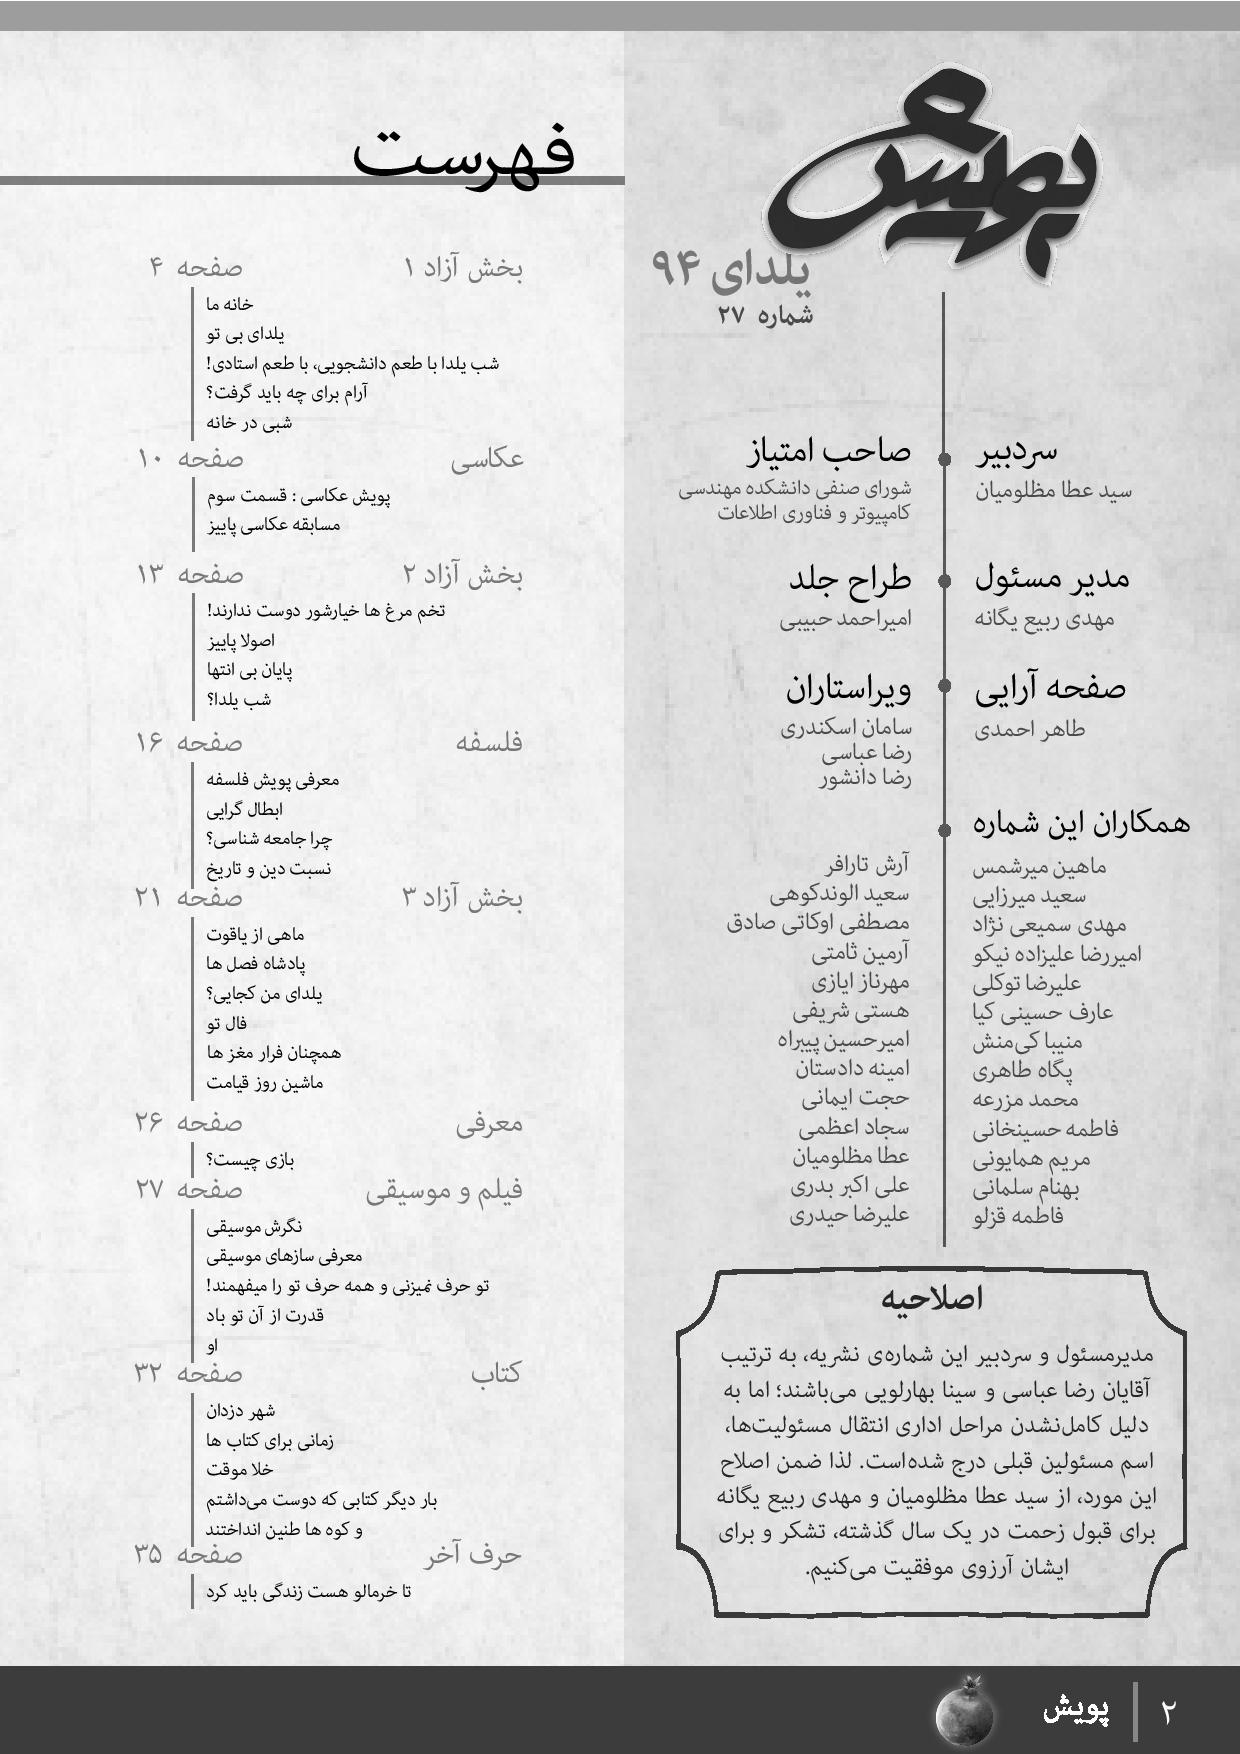 پویش
یلدای ۹۴
شماره ۲۷
سردبیر
سید عطا مظلومیان
صاحب امتیاز
شورای صنفی دانشکده مهندسی
کامپیوتر و فناوری اطلاعات
مدیر مسئول
مهدی ربیع یگانه
طراح جلد
امیراحمد حبیبی
صفحه آرایی
طاهر احمدی
ویراستاران
سامان اسکندری
رضا عباسی
رضا دانشور
همکاران این شماره
ماهین میرشمس
سعید میرزایی
مهدی سمیعی نژاد
امیررضا علیزاده نیکو
علیرضا توکلی
عارف حسینی کیا
منیبا کی‌منش
پگاه طاهری
محمد مزرعه
فاطمه حسینخانی
مریم همایونی
بهنام سلمانی
فاطمه قزلو
آرش تارافر
سعید الوندکوهی
مصطفی اوکاتی صادق
آرمین ثامتی
مهرناز ایازی
هستی شریفی
امیرحسین پیبراه
امینه دادستان
حجت ایمانی
سجاد اعظمی
عطا مظلومیان
علی اکبر بدری
علیرضا حیدری
اصلاحیه
مدیرمسئول و سردبیر این شماره‌ی نشریه، به ترتیب
آقایان رضا عباسی و سینا بهارلویی می‌باشند؛ اما به
دلیل کامل‌نشدن مراحل اداری انتقال مسئولیت‌ها،
اسم مسئولین قبلی درج شده‌است. لذا ضمن اصلاح
این مورد، از سید عطا مظلومیان و مهدی ربیع یگانه
برای قبول زحمت در یک سال گذشته، تشکر و برای
ایشان آرزوی موفقیت می‌کنیم.
فهرست
بخش آزاد ۱ صفحه ۴
خانه ما
یلدای بی تو
شب یلدا با طعم دانشجویی، با طعم استادی!
آرام برای چه باید گرفت؟
شبی در خانه
عکاسی صفحه ۱۰
پویش عکاسی : قسمت سوم
مسابقه عکاسی پاییز
بخش آزاد ۲ صفحه ۱۳
تخم مرغ ها خیارشور دوست ندارند!
اصولا پاییز
پایان بی انتها
شب یلدا؟
فلسفه صفحه ۱۶
معرفی پویش فلسفه
ابطال گرایی
چرا جامعه شناسی؟
نسبت دین و تاریخ
بخش آزاد ۳ صفحه ۲۱
ماهی از یاقوت
پادشاه فصل ها
یلدای من کجایی؟
فال تو
همچنان فرار مغز ها
ماشین روز قیامت
معرفی صفحه ۲۶
بازی چیست؟
فیلم و موسیقی صفحه ۲۷
نگرش موسیقی
معرفی سازهای موسیقی
تو حرف نمیزنی و همه حرف تو را میفهمند!
قدرت از آن تو باد
او
کتاب صفحه ۳۲
شهر دزدان
زمانی برای کتاب ها
خلا موقت
بار دیگر کتابی که دوست می‌داشتم
و کوه ها طنین انداختند
حرف آخر صفحه ۳۵
تا خرمالو هست زندگی باید کرد
۲ پویش